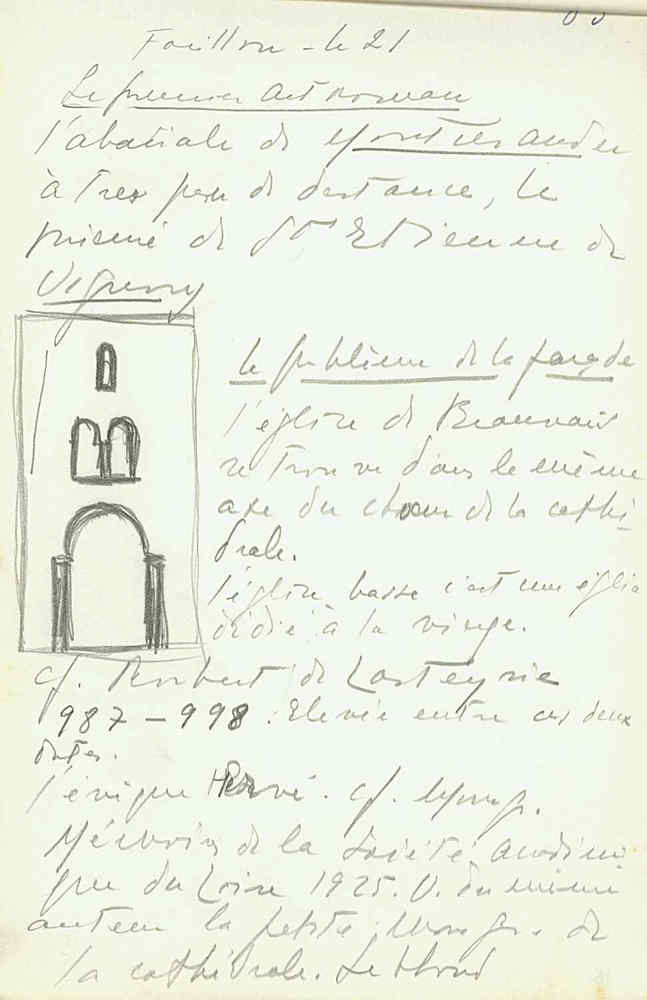 Focillon - le 21
Le premier art roman
l'abatiale de Montier ander
à tres peu de distance, le
prieuré de St Etienne de
Vignory
le problème de la façade
l'église de Beauvais
se trouve dans le même
axe du choeur de la cathé-
drale.
l'église basse c'est une église
dédié à la vierge.
cf. Robert de Lasteyrie
987 - 998 : Elevée entre ces deux
dates.
l'évêque Hervé. cf. Monogr.
Mémoires de la Société
que du 1925. V. du même
auteur la petite Monogr. de
la cathédrale.